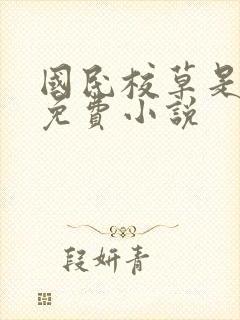 國民校草是
免費小說
段妍青